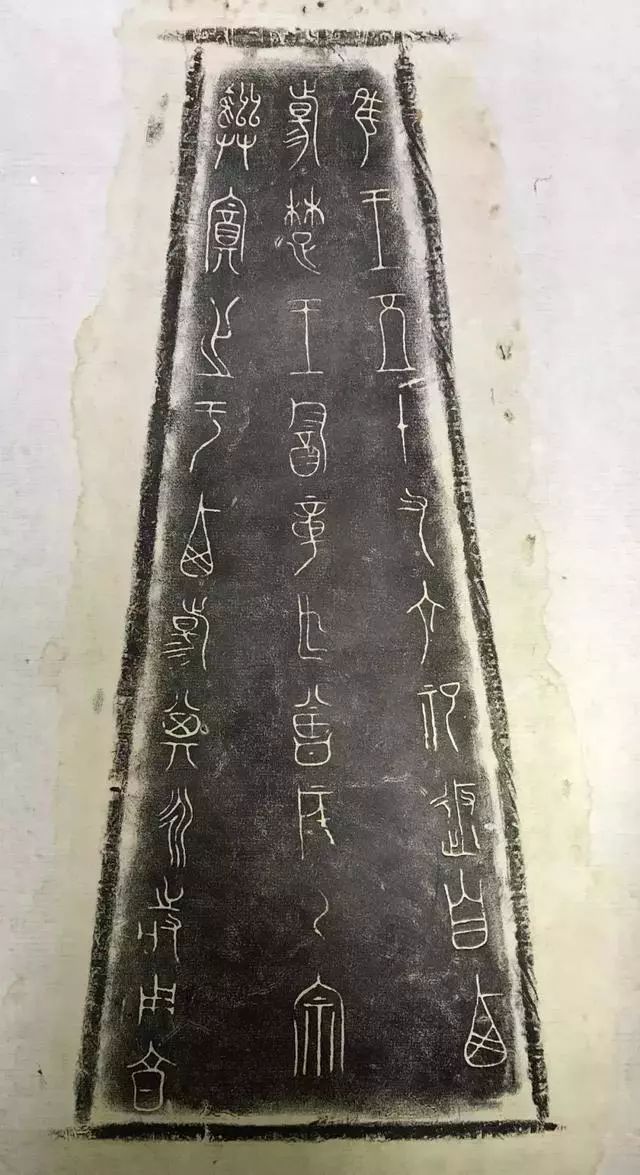 隹王五十又六祀返自西
陽楚王酓章乍曾侯乙宗
彝奠之于西陽其永持用享